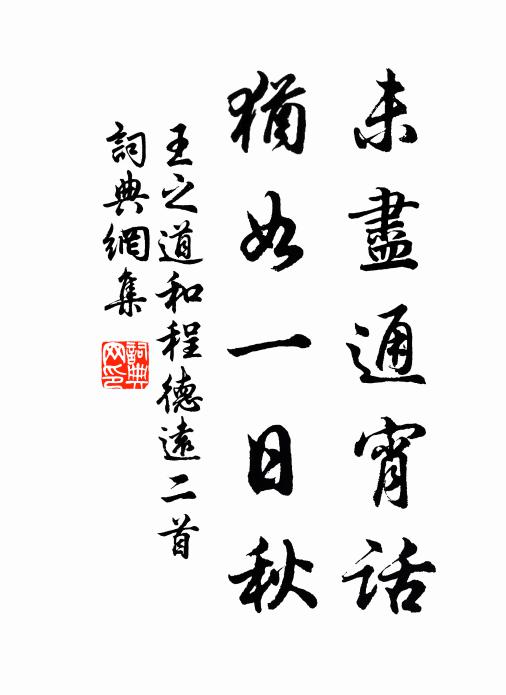 未盡通宵話
猶如一日秋
王之道和程德遠二首
詞典網集
詞典
网印